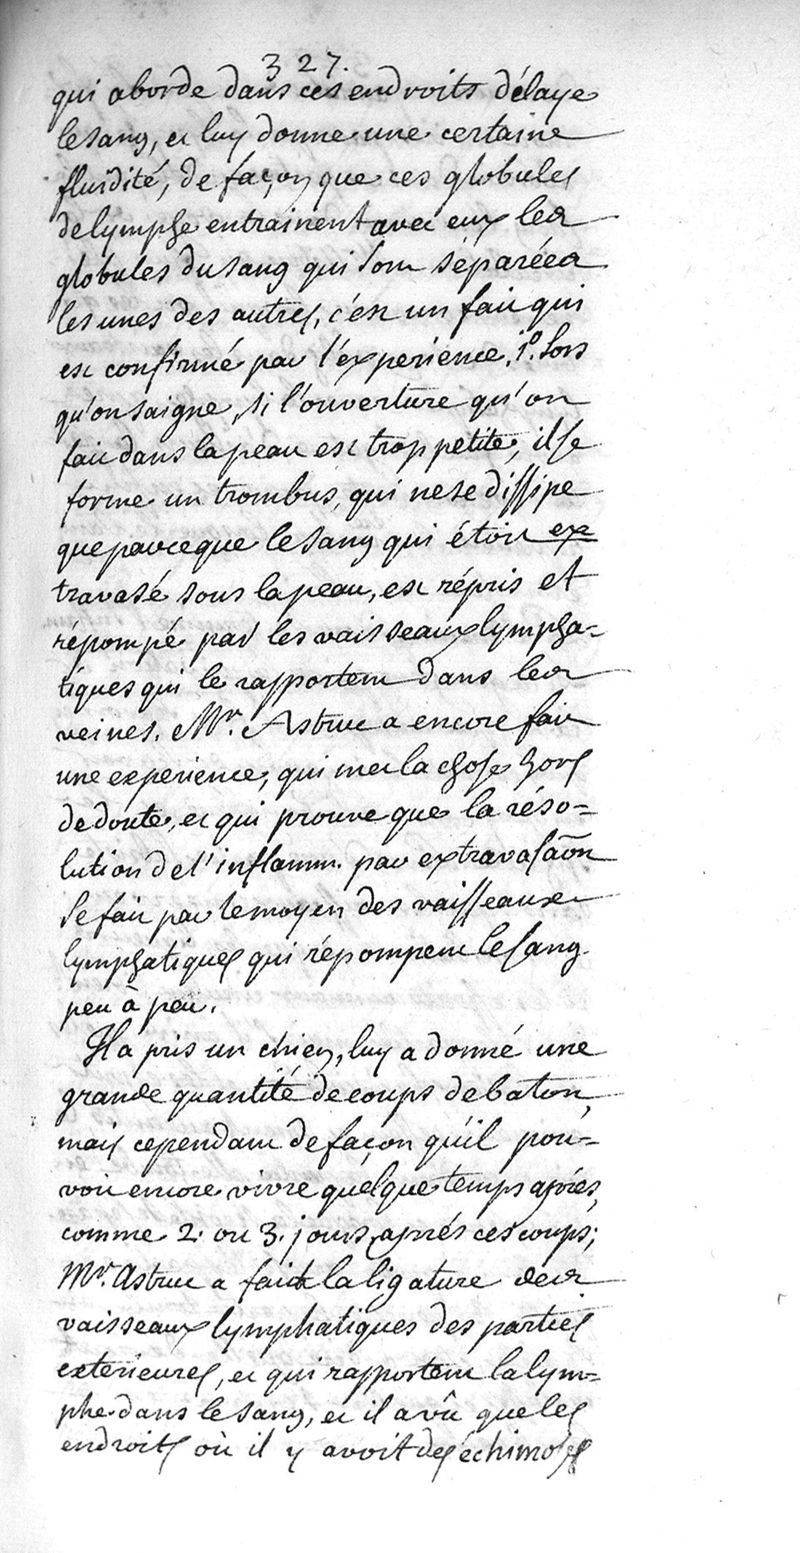 327.
qui aborde dans ces endroits délaye
le sang, et luy donne une certaine
fluidité, de façon que ces globules
de lymphe entrainent avec eux les
globules du sang qui sont séparées
les unes des autres, c'est un fait qui
est confirmé par l'éxperience, 1º. Lors
qu'on saigne, si l'ouverture qu'on
fait dans la peau est trop petite, il se
forme un trombus, qui ne se dissipe
que parceque le sang qui étoit ex=
travasé sous la peau, est répris et
répompé par les vaisseaux lympha=
tiques qui le rapportent dans les
veines. Mr. Astruc a encore fait
une experience, qui met la chose hors
de doute, et qui prouve que la réso=
lution de l'inflamm. par extravasaõn
se fait par le moyen des vaisseaux
lymphatiques qui répompent le sang
peu à peu.
Il a pris un chien, luy a donné une
grande quantité de coups de baton,
mais cependant de façon qu'il pou=
voit encore vivre quelque temps aprés,
comme 2. ou 3. jours aprrés ces coups;
Mr. Astruc a fait la ligature des
vaisseaux lymphatiques des parties
exterieures, et qui rapportent la lym=
phe dans le sang, et il a vû que les
endroits où il y avoit des échimoses